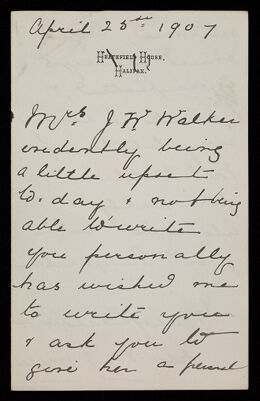 April 25th 1907
Heathfield House,
Halifax.
Mrs J W Walker
evidently being
a little upset
to. day & not being
able to write
you personally
has wished me
to write you
& ask you to
give her a